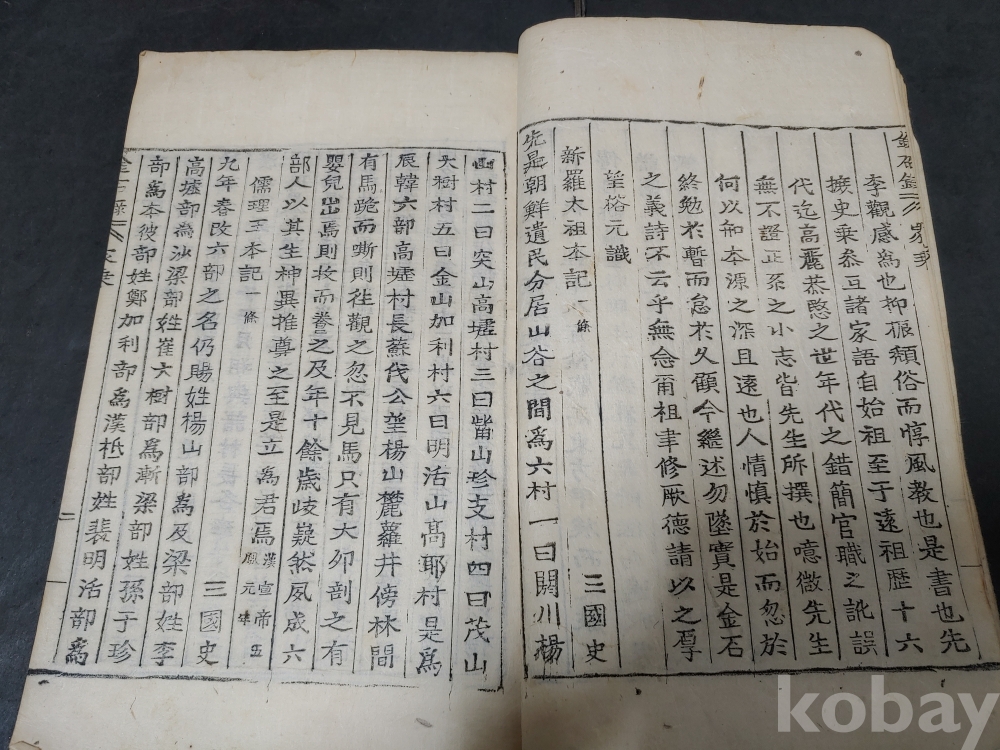 金石錄 家乘
李觀感爲也抑振頹俗而惇風教也是書也先
據史乘叅互諸家語自始祖至于遠祖歷十六
代迄高麗恭愍之世年代之錯簡官職之訛誤
無不證正系之小志皆先生所撰也噫微先生
何以知本源之深且遠也人情慎於始而忽於
終勉於暫而怠於久顧今繼述勿墜實是金石
之義詩不云乎無念爾祖聿修厥德請以之厚
望椧元識
新羅太祖本記 條 三國史
先是朝鮮遺民分居山谷之間爲六村一曰閼川楊
山村二曰突山高墟村三曰觜山珍支村四曰茂山
大樹村五曰金山加利村六曰明活山高耶村是爲
辰韓六部高墟村長蘇伐公望楊山麓蘿井傍林間
有馬跪而嘶則徃觀之忽不見馬只有大卵剖之有
嬰兒出焉則收而養之及年十餘歲岐嶷然夙成六
部人以其生神異推尊之至是立爲君焉 漢宣帝五鳳元年
儒理王本記 一條 三國史
九年春改六部之名仍賜姓楊山部爲及梁部姓李
高墟部爲沙梁部姓崔大樹部爲漸梁部姓孫于珍
部爲本彼部姓鄭加利部爲漢柢部姓裴明活部爲
金石錄 家乘 二